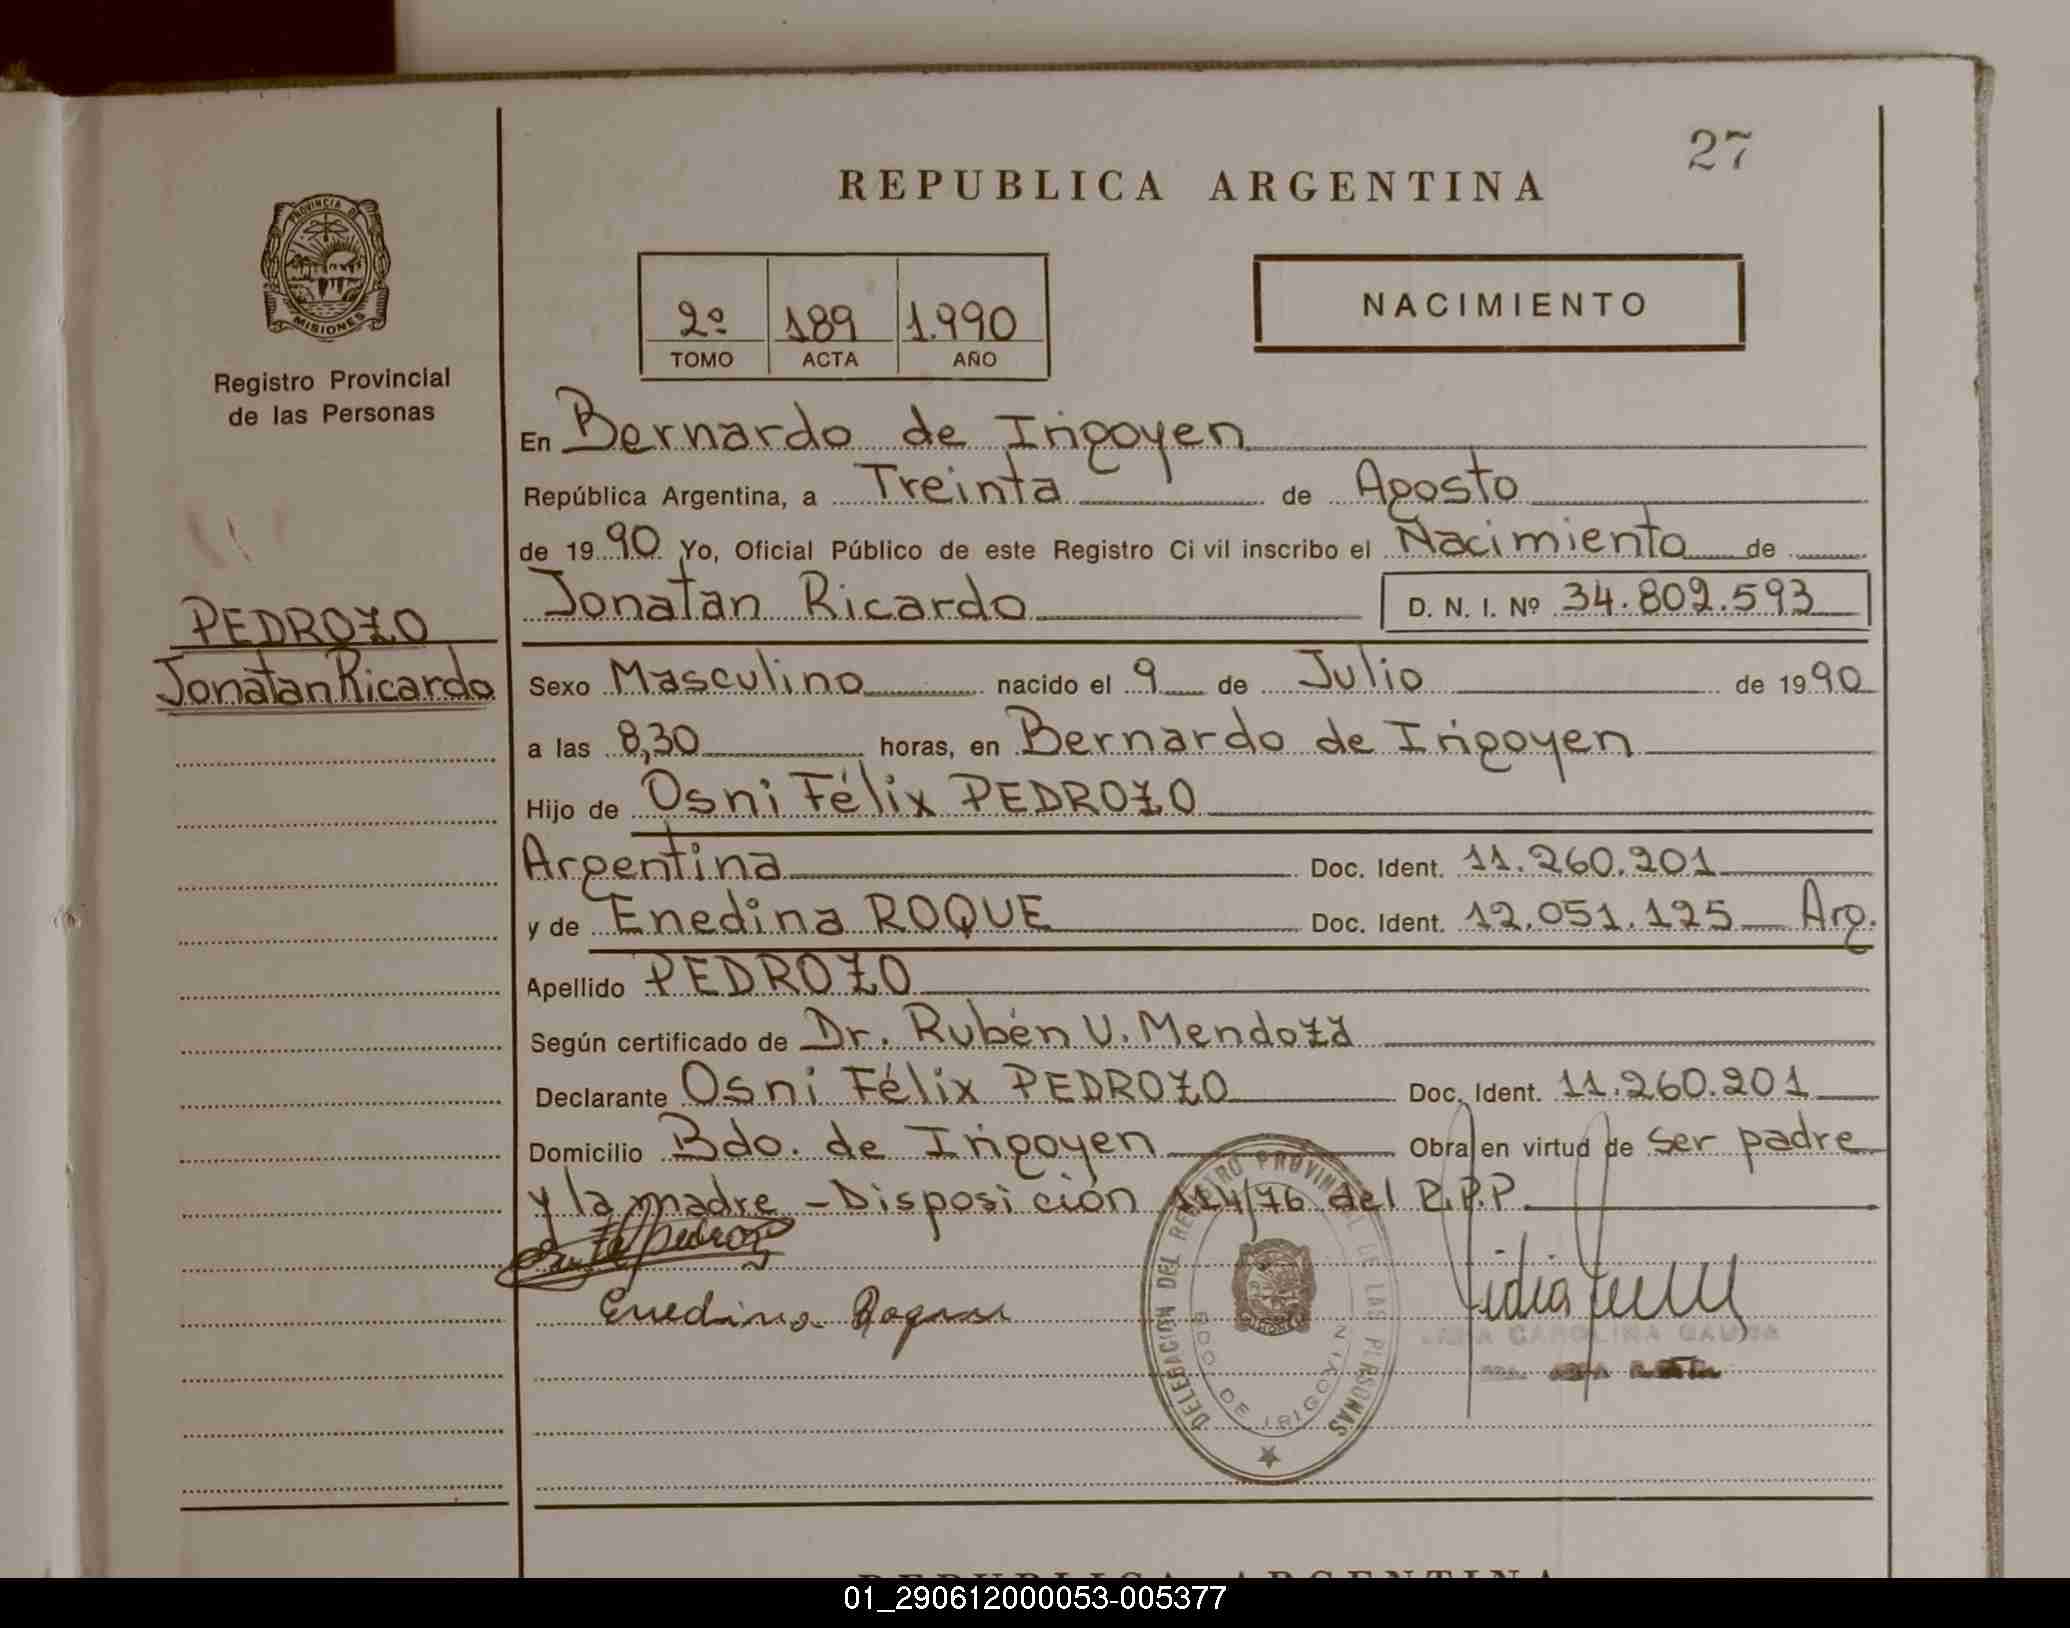 27
REPUBLICA ARGENTINA
PROVINCIA DE
MISIONES
Registro Provincial
de las Personas
2º 189 1.990
TOMO ACTA AÑO
NACIMIENTO
En Bernardo de Irigoyen
República Argentina, a Treinta de Agosto
de 1990 Yo, Oficial Público de este Registro Civil inscribo el Nacimiento de
Jonatan Ricardo D. N. I. Nº 34.802.593
PEDROZO
Jonatan Ricardo
Sexo Masculino nacido el 9 de Julio de 1990
a las 8,30 horas, en Bernardo de Irigoyen
Hijo de Osni Félix PEDROZO
Argentina Doc. Ident. 11.260.201
y de Enedina ROQUE Doc. Ident. 12.051.125 Arg.
Apellido PEDROZO
Según certificado de Dr. Rubén U. Mendoza
Declarante Osni Félix PEDROZO Doc. Ident. 11.260.201
Domicilio Bdo. de Irigoyen Obra en virtud de ser padre
y la madre - Disposición 114/76 del R.P.P.
Enedina Roque
DELEGACION DEL REGISTRO PROVINCIAL DE LAS PERSONAS
BDO DE IRIGOYEN
CAROLINA
REPUBLICA ARGENTINA
01_290612000053-005377